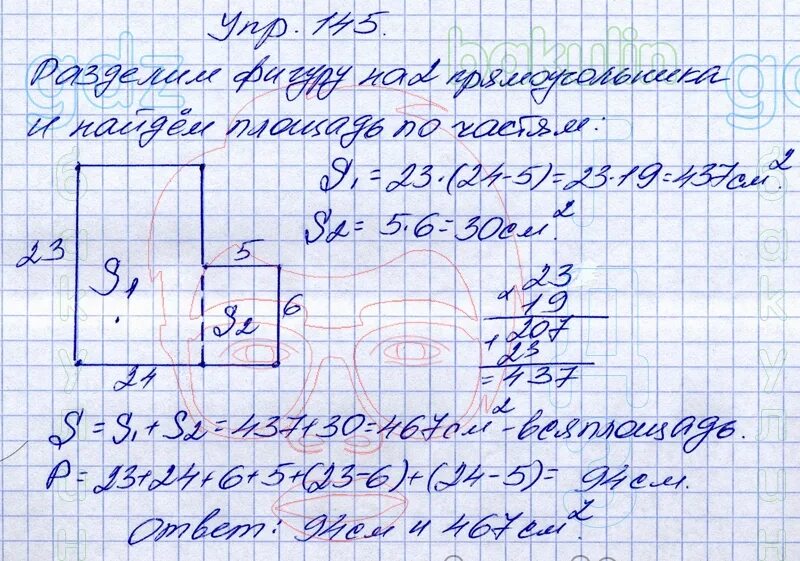 Упр. 145.
Разделим фигуру на 2 прямоугольника
и найдём площадь по частям:
S₁ = 23·(24-5) = 23·19 = 437 см².
S₂ = 5·6 = 30 см².
23
S₁
5
S₂
6
24
× 23
19
+ 207
23
= 437
S = S₁ + S₂ = 437 + 30 = 467 см² - вся площадь.
P = 23+24+6+5+(23-6)+(24-5) = 94 см.
Ответ: 94 см и 467 см².
gdz
bakulin